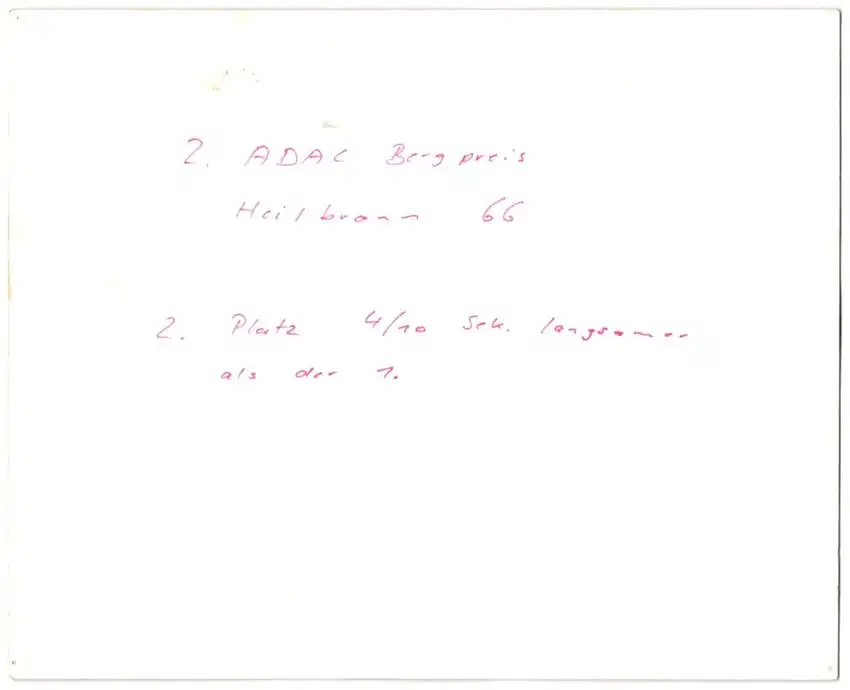 2. ADAC Bergpreis
Heilbronn 66
2. Platz 4/10 Sek. langsamer
als der 1.